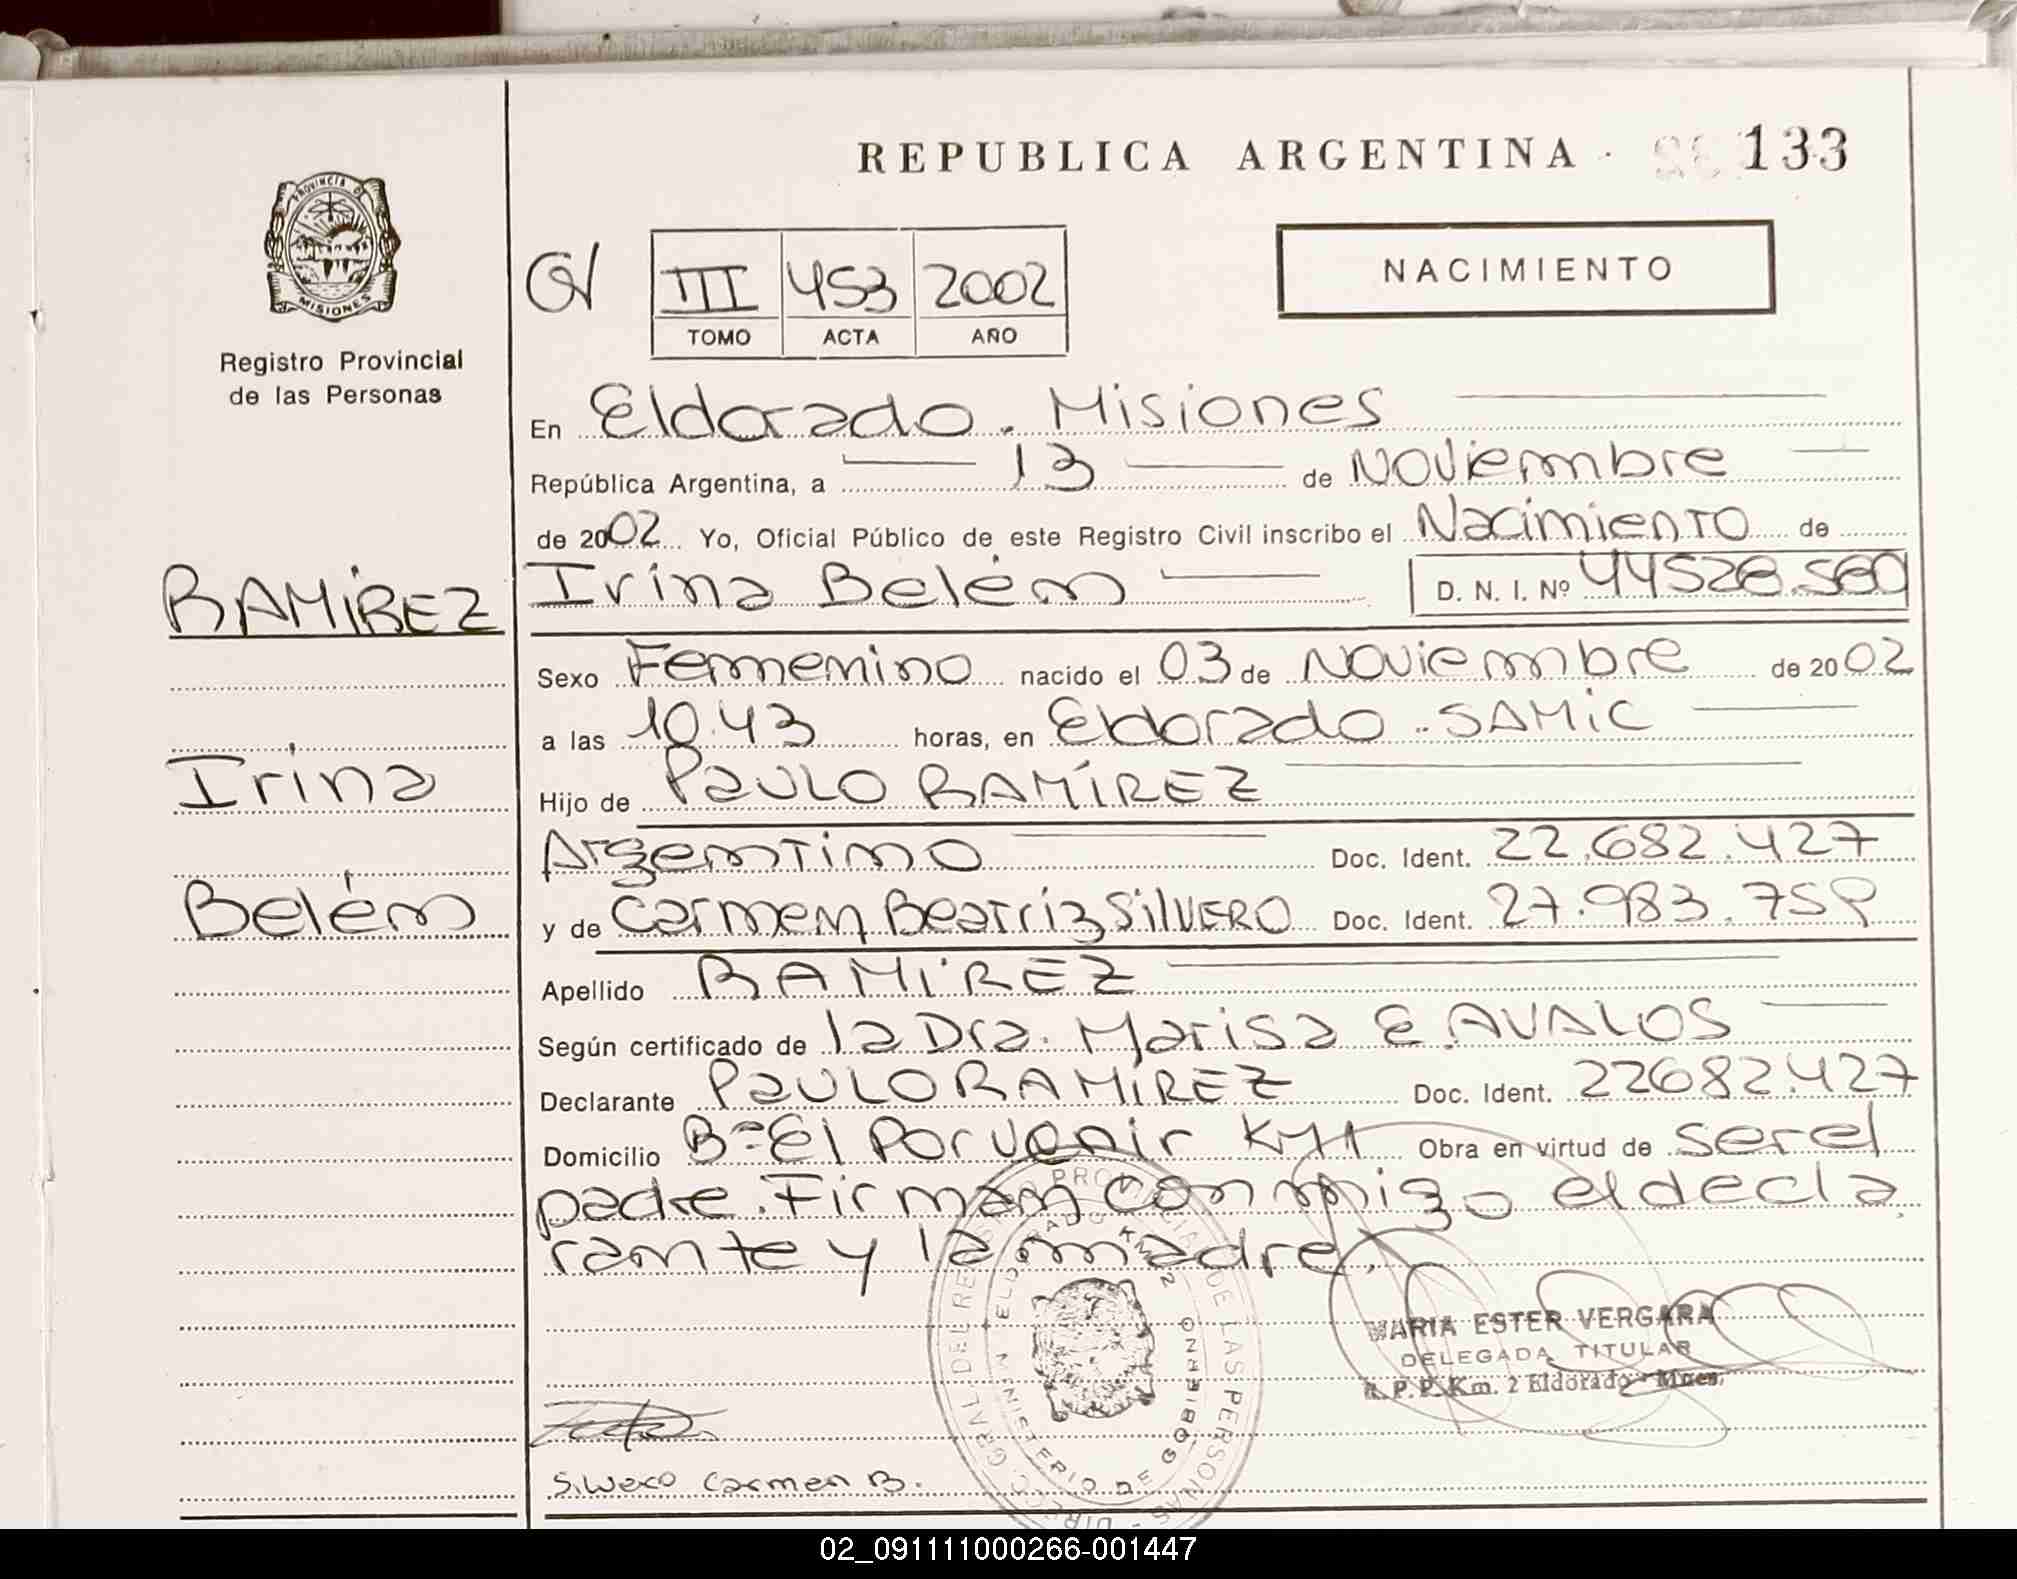 REPUBLICA ARGENTINA 133
PROVINCIA D
MISIONES
Registro Provincial
de las Personas
III 453 2002
TOMO ACTA AÑO
NACIMIENTO
En Eldorado. Misiones
República Argentina, a 13 de Noviembre
de 2002 Yo, Oficial Público de este Registro Civil inscribo el Nacimiento de
RAMÍREZ Irina Belém D. N. I. Nº 44528.580
Sexo Femenino nacido el 03 de Noviembre de 2002
a las 10.43 horas, en Eldorado. SAMIC
Irina
Hijo de PAULO RAMÍREZ
Argentino Doc. Ident. 22.682.427
Belém
y de Carmen Beatriz SILVERO Doc. Ident. 27.983.759
Apellido RAMIREZ
Según certificado de la Dra. Marisa E. AVALOS
Declarante PAULO RAMÍREZ Doc. Ident. 22682.427
Domicilio Bº El Porvenir KM 1 Obra en virtud de ser el
padre. Firman conmigo el decla
rante y la madre.
DIRECC. GRAL. DEL REGISTRO PROVINCIAL DE LAS PERSONAS
ELDORADO KM 2
MINISTERIO DE GOBIERNO
MARIA ESTER VERGARA
DELEGADA TITULAR
R. P. P. Km. 2 Eldorado - Mnes.
Silvero Carmen B.
02_091111000266-001447